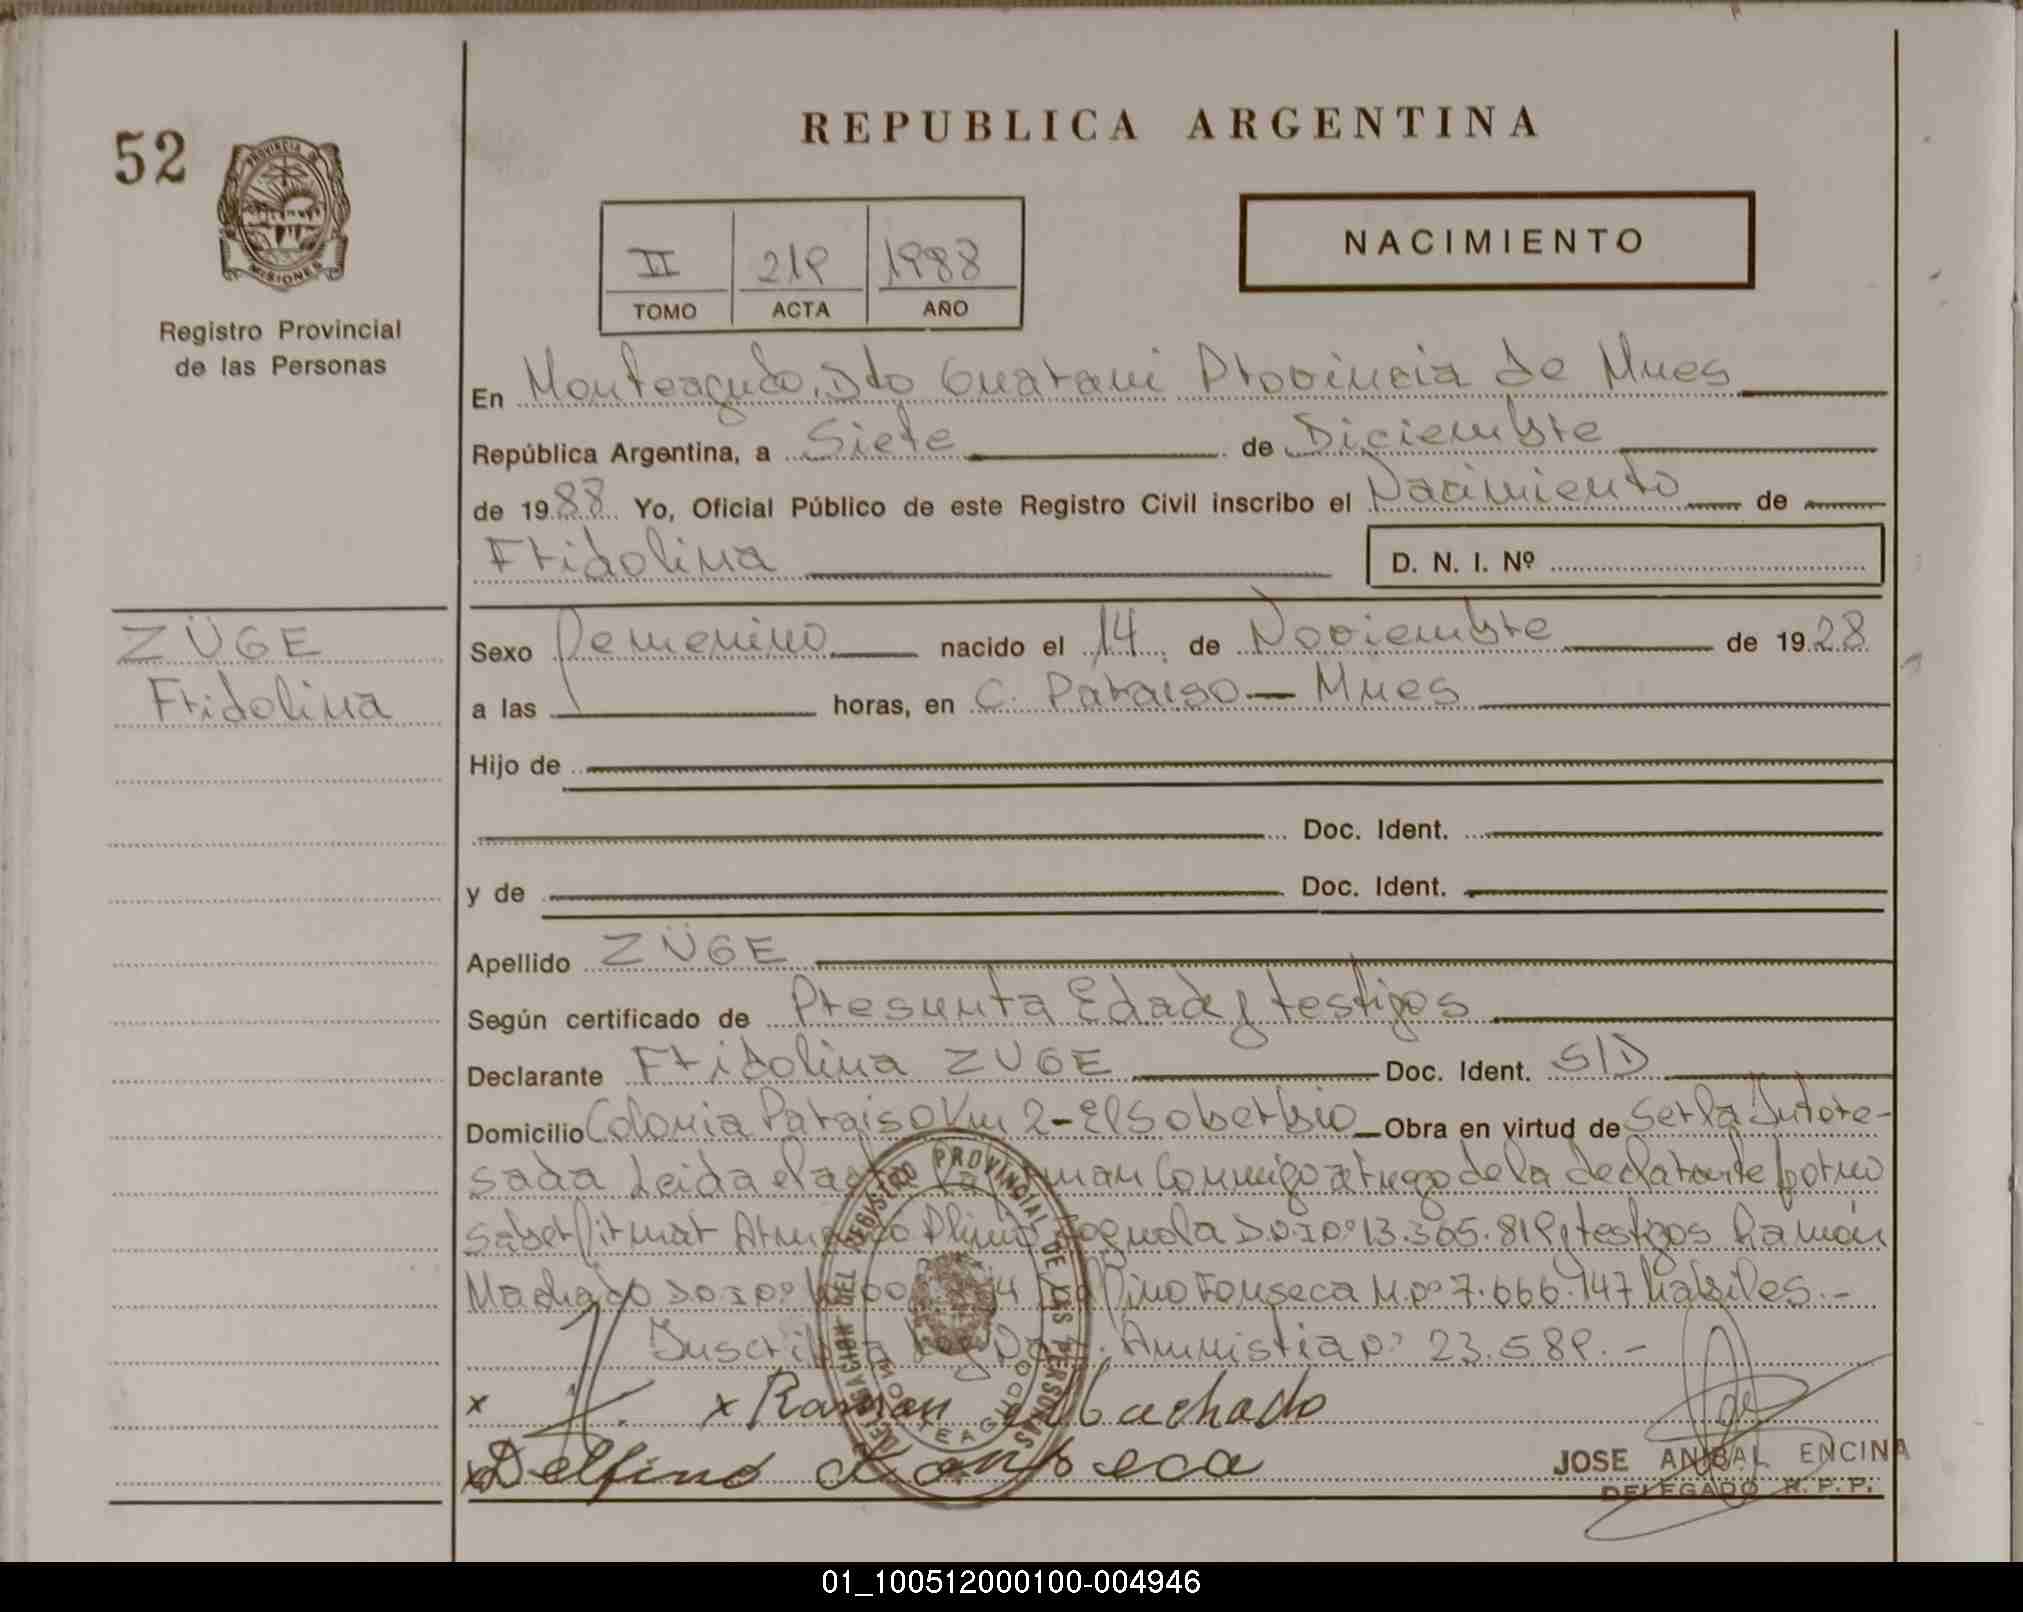 REPUBLICA ARGENTINA
52
PROVINCIA DE
MISIONES
Registro Provincial
de las Personas
NACIMIENTO
II 219 1988
TOMO ACTA AÑO
En Monteagudo, Dto Guarani Provincia de Mnes
República Argentina, a Siete de Diciembre
de 1988 Yo, Oficial Público de este Registro Civil inscribo el Nacimiento de
Fridolina D. N. I. Nº
ZÜGE
Fridolina
Sexo Femenino nacido el 14 de Noviembre de 1928
a las horas, en C. Paraiso - Mnes
Hijo de
Doc. Ident.
y de Doc. Ident.
Apellido ZÜGE
Según certificado de Presunta Edad y testigos
Declarante Fridolina ZUGE Doc. Ident. S/D
Domicilio Colonia Paraiso Km 2 - El Soberbio Obra en virtud de ser la Intere-
sada Leida el conmigo a ruego de la declarante por no
saber firmar D.N.I.Nº 13.365.819 y testigos Ramón
Machado D.N.I.Nº Fonseca M.Nº 7.666.147 habiles.-
Amnistia Nº 23.589.-
x x Ramon Machado
x Delfino Fonseca
DELEGACION DEL REGISTRO PROVINCIAL DE LAS PERSONAS
JOSE ANIBAL ENCINA
DELEGADO R. P. P.
01_100512000100-004946